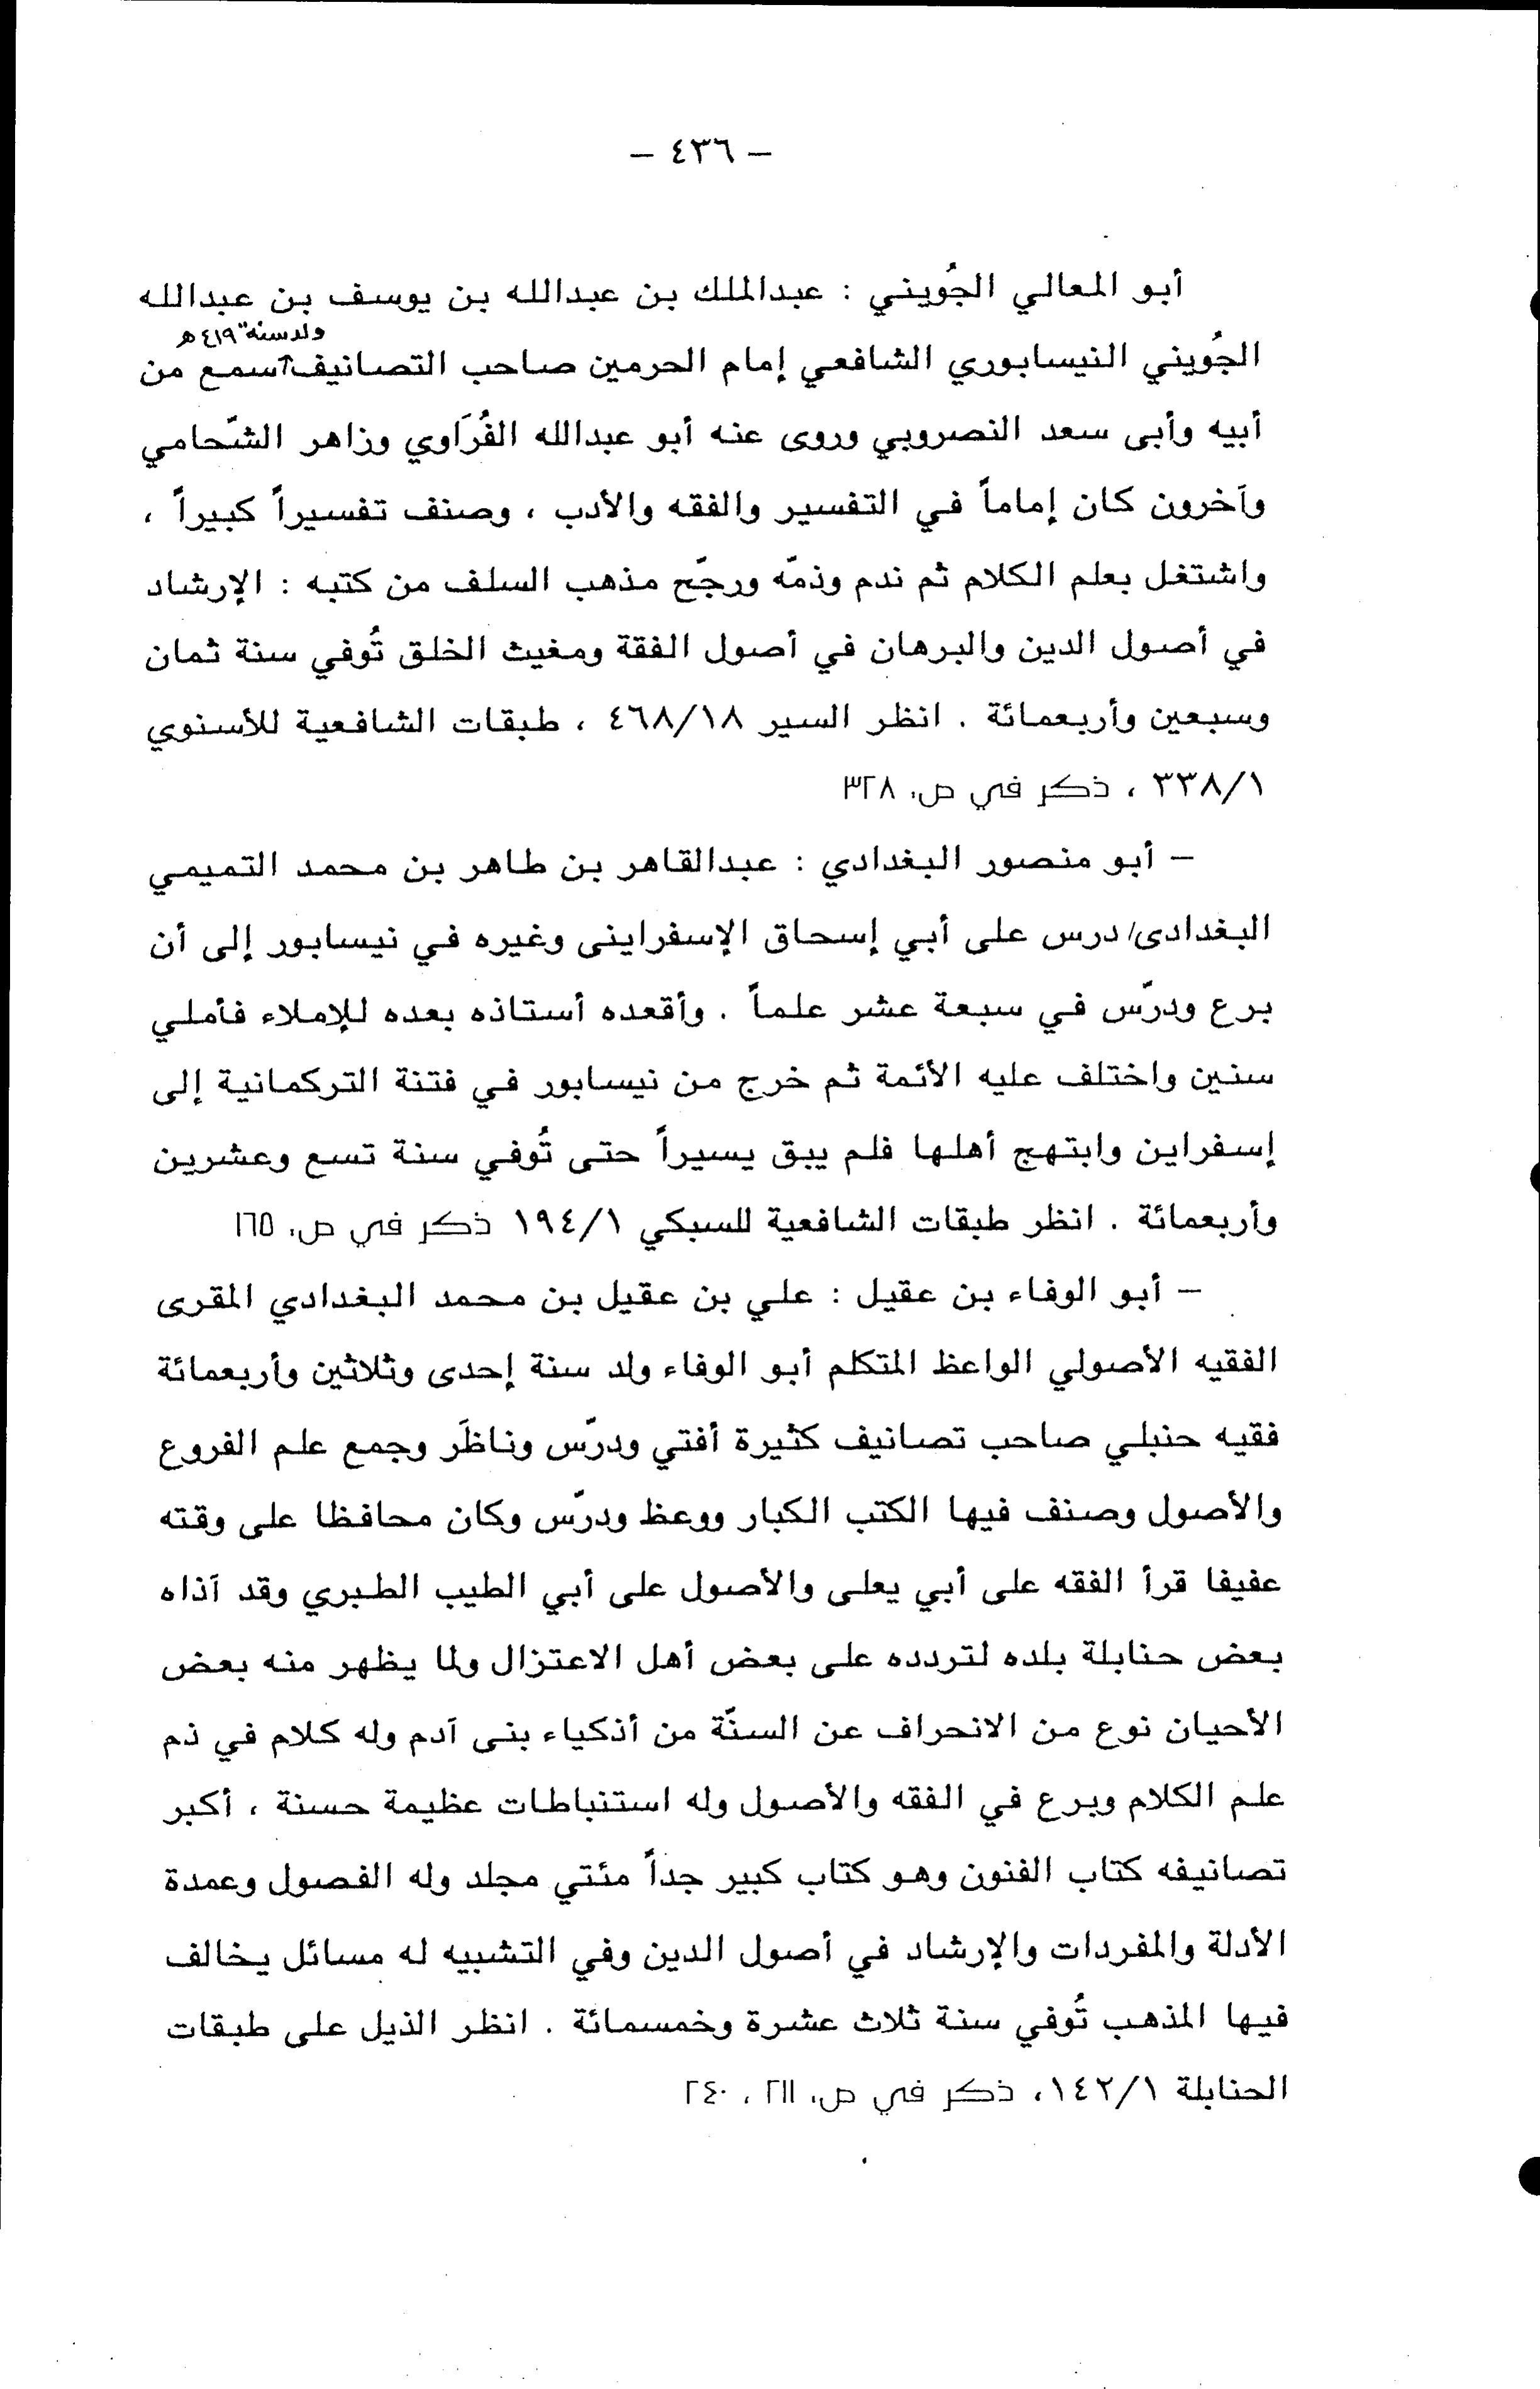 – ٤٣٦ –
أبو المعالي الجُويني : عبدالملك بن عبدالله بن يوسف بن عبدالله
ولد سنة ٤١٩ هـ
الجُويني النيسابوري الشافعي إمام الحرمين صاحب التصانيف سمع من
أبيه وأبى سعد النصرويي وروى عنه أبو عبدالله الفُرَاوي وزاهر الشّحامي
وآخرون كان إماماً في التفسير والفقه والأدب ، وصنف تفسيراً كبيراً ،
واشتغل بعلم الكلام ثم ندم وذمّه ورجّح مذهب السلف من كتبه : الإرشاد
في أصول الدين والبرهان في أصول الفقة ومغيث الخلق تُوفي سنة ثمان
وسبعين وأربعمائة . انظر السير ٤٦٨/١٨ ، طبقات الشافعية للأسنوي
٣٣٨/١ ، ذكر في ص. ٣٢٨
– أبو منصور البغدادي : عبدالقاهر بن طاهر بن محمد التميمي
البغدادى/ درس على أبي إسحاق الإسفراينى وغيره في نيسابور إلى أن
برع ودرّس في سبعة عشر علماً . وأقعده أستاذه بعده للإملاء فأملي
سنين واختلف عليه الأئمة ثم خرج من نيسابور في فتنة التركمانية إلى
إسفراين وابتهج أهلها فلم يبق يسيراً حتى تُوفي سنة تسع وعشرين
وأربعمائة . انظر طبقات الشافعية للسبكي ١٩٤/١ ذكر في ص. ١٦٥
– أبو الوفاء بن عقيل : علي بن عقيل بن محمد البغدادي المقرى
الفقيه الأصولي الواعظ المتكلم أبو الوفاء ولد سنة إحدى وثلاثين وأربعمائة
فقيه حنبلي صاحب تصانيف كثيرة أفتي ودرّس وناظَر وجمع علم الفروع
والأصول وصنف فيها الكتب الكبار ووعظ ودرّس وكان محافظا على وقته
عفيفا قرأ الفقه على أبي يعلى والأصول على أبي الطيب الطبري وقد آذاه
بعض حنابلة بلده لتردده على بعض أهل الاعتزال ولما يظهر منه بعض
الأحيان نوع من الانحراف عن السنّة من أذكياء بنى آدم وله كلام في ذم
علم الكلام وبرع في الفقه والأصول وله استنباطات عظيمة حسنة ، أكبر
تصانيفه كتاب الفنون وهو كتاب كبير جداً مئتي مجلد وله الفصول وعمدة
الأدلة والمفردات والإرشاد في أصول الدين وفي التشبيه له مسائل يخالف
فيها المذهب تُوفي سنة ثلاث عشرة وخمسمائة . انظر الذيل على طبقات
الحنابلة ١٤٢/١، ذكر في ص. ٢١١ ، ٢٤٠